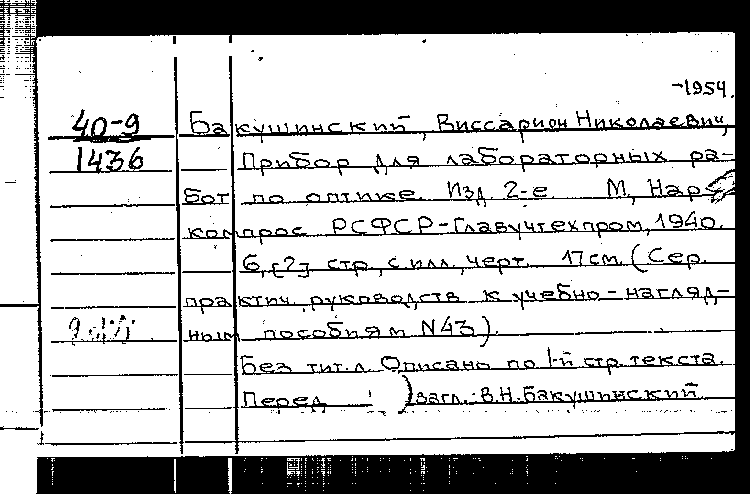 -1954.
40-9 Бакушинский, Виссарион Николаевич,
1436 Прибор для лабораторных ра-
бот по оптике. Изд. 2-е. М, Нар-
компрос РСФСР-Главучтехпром, 1940.
6, [2] стр., с илл., черт. 17 см. (Сер.
практич. руководств к учебно-нагляд-
ным пособиям N43).
Без тит. л. Описано по 1-й стр. текста.
Перед загл.: В.Н. Бакушинский